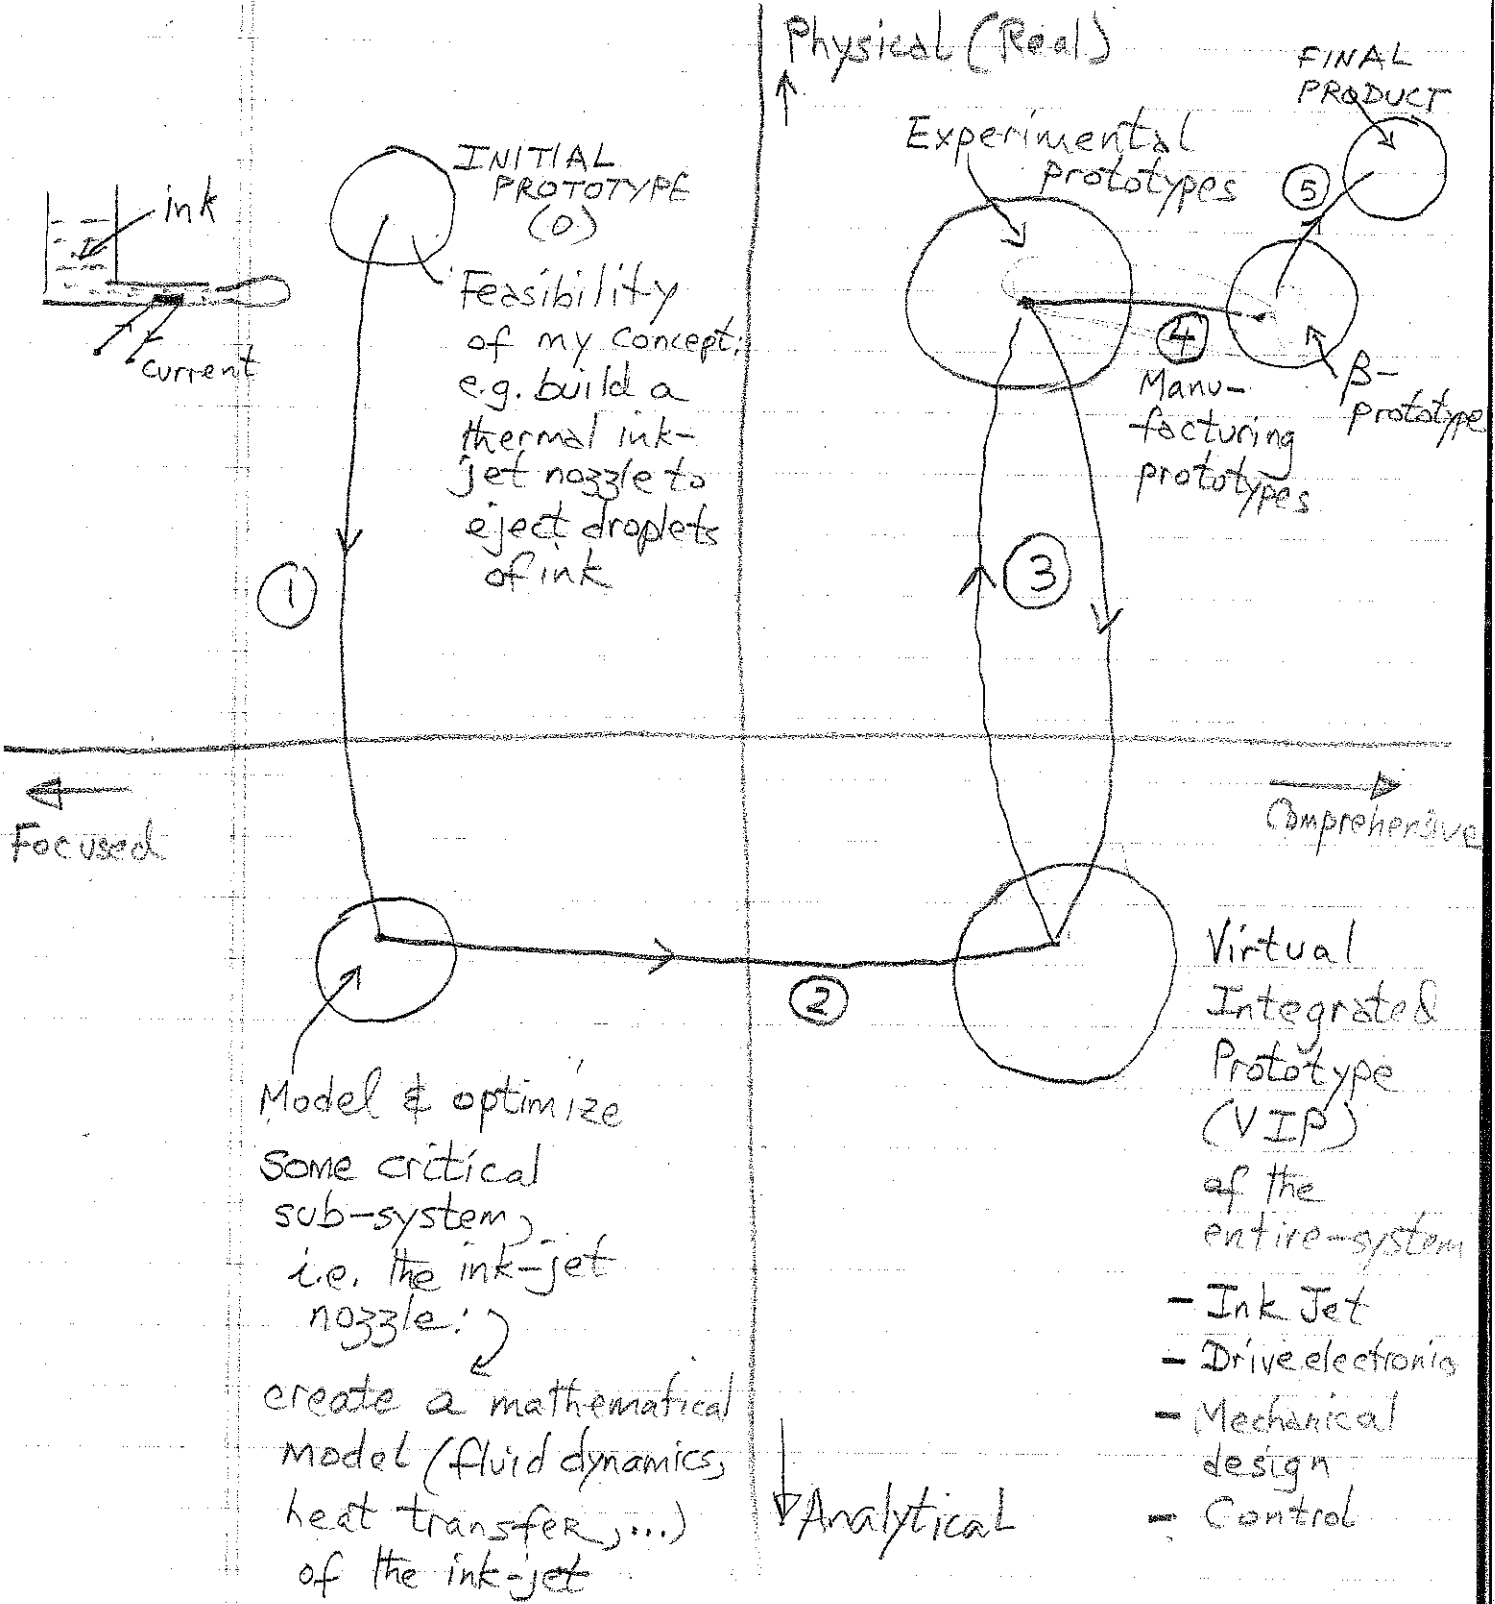 Physical (Real)
FINAL
PRODUCT
Experimental
prototypes
INITIAL
PROTOTYPE
(0)
ink
current
Feasibility
of my concept;
e.g. build a
thermal ink-
jet nozzle to
eject droplets
of ink
5
4
β-
prototype
Manu-
facturing
prototypes
1
3
Focused
Comprehensive
2
Virtual
Integrated
Prototype
(VIP)
of the
entire-system
- Ink Jet
- Drive electronics
- Mechanical
design
- Control
Model & optimize
some critical
sub-system,
i.e. the ink-jet
nozzle:
create a mathematical
model (fluid dynamics,
heat transfer, ...)
of the ink-jet
Analytical